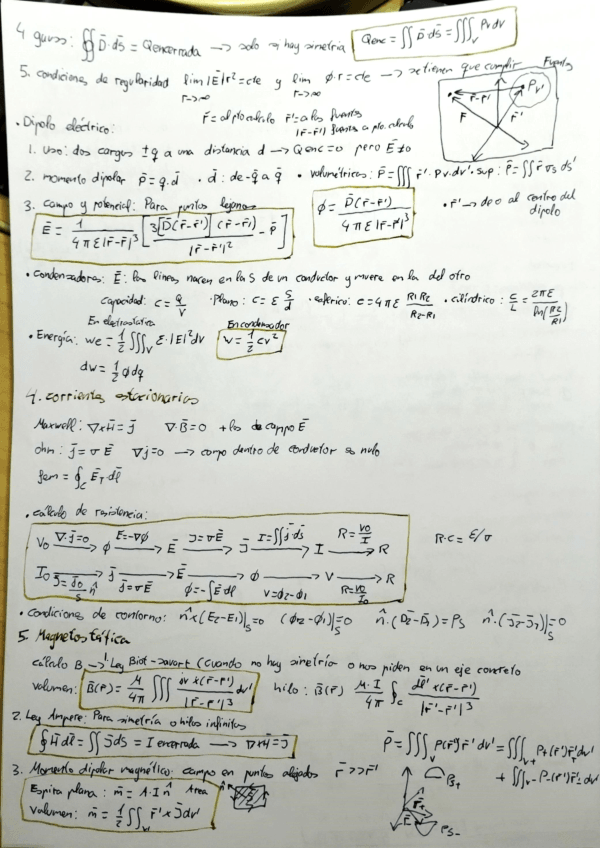 4 gauss: ∯ D̄·ds̄ = Qencerrada → solo si hay simetría Qenc = ∬ D̄·ds̄ = ∭_V ρv dv
5. condiciones de regularidad lim r→∞ |Ē|r² = cte y lim r→∞ φ·r = cte → se tienen que cumplir
Fuentes
r̄ = al pto calculo r̄' = a las fuentes
|r̄-r̄'| fuentes a pto. calculo
r̄-r̄' ρv' r̄ r̄'
• Dipolo eléctrico:
1. uso: dos cargas ±q a una distancia d → Qenc=0 pero Ē≠0
2. momento dipolar p̄ = q·d̄ • d̄: de -q a q • volumétricas: p̄ = ∭ r̄'·ρv·dv' • sup: p̄ = ∬ r̄ σs ds'
3. campo y potencial: Para puntos lejanos
Ē = 1/(4πε|r̄-r̄'|³) [3[D̄(r̄-r̄')](r̄-r̄')/|r̄-r̄'|² - p̄] φ = D̄(r̄-r̄')/(4πε|r̄-r̄'|³) • r̄' → de 0 al centro del dipolo
• condensadores: Ē: las lineas nacen en la S de un conductor y muere en la del otro
capacidad: C = Q/V • Plano: C = ε S/d • esferico: C = 4πε R1R2/(R2-R1) • cilíndrico: C/L = 2πε/ln(R2/R1)
En electrostática En condensador
• Energía: we = 1/2 ∭_V ε·|E|² dv w = 1/2 CV²
dw = 1/2 φdq
4. corrientes estacionarias
Maxwell: ∇×H̄ = j̄ ∇·B̄=0 + las de campo Ē
ohm: j̄ = σĒ ∇j̄=0 → campo dentro de conductor es nulo
fem = ∮_C Ē_T dl̄
• cálculo de resistencia:
V0 —∇·j̄=0→ φ —E=-∇φ→ Ē —J=σE→ J̄ —I=∬j̄·ds̄→ I —R=V0/I→ R
R·C = ε/σ
I0 —J̄=I0/S n̂→ j̄ —j̄=σĒ→ Ē —φ=-∫Ēdl̄→ φ —V=φ2-φ1→ V —R=V0/I0→ R
• condiciones de contorno: n̂×(E2-E1)|s=0 (φ2-φ1)|s=0 n̂·(D̄2-D̄1)=ρs n̂·(J2-J1)|s=0
5. Magnetostática
cálculo B → 1. Ley Biot-Savart (cuando no hay simetría o nos piden en un eje concreto
volumen: B̄(r̄) = μ/4π ∭ Jv×(r̄-r̄')/|r̄-r̄'|³ dv' hilo: B̄(r̄) μ·I/4π ∮_C dl̄'×(r̄-r̄')/|r̄-r̄'|³
2. Ley Ampere: Para simetría o hilos infinitos
∮ H̄ dl̄ = ∬ J̄ ds̄ = I encerrada → ∇×H̄ = J̄
p̄ = ∭_V ρ(r̄')r̄' dv' = ∭_V+ ρ+(r̄')r̄'dv'
+ ∭_V- ρ-(r̄')r̄'- dv
3. Momento dipolar magnético: campo en puntos alejados r̄ >> r̄'
Espira plana: m̄ = A·I n̂ Area n̂
volumen: m̄ = 1/2 ∬_V' r̄' × J̄ dv'
ρs+
ρs-